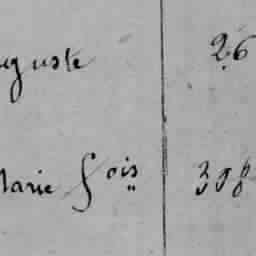 uguste 26
Marie fois 398